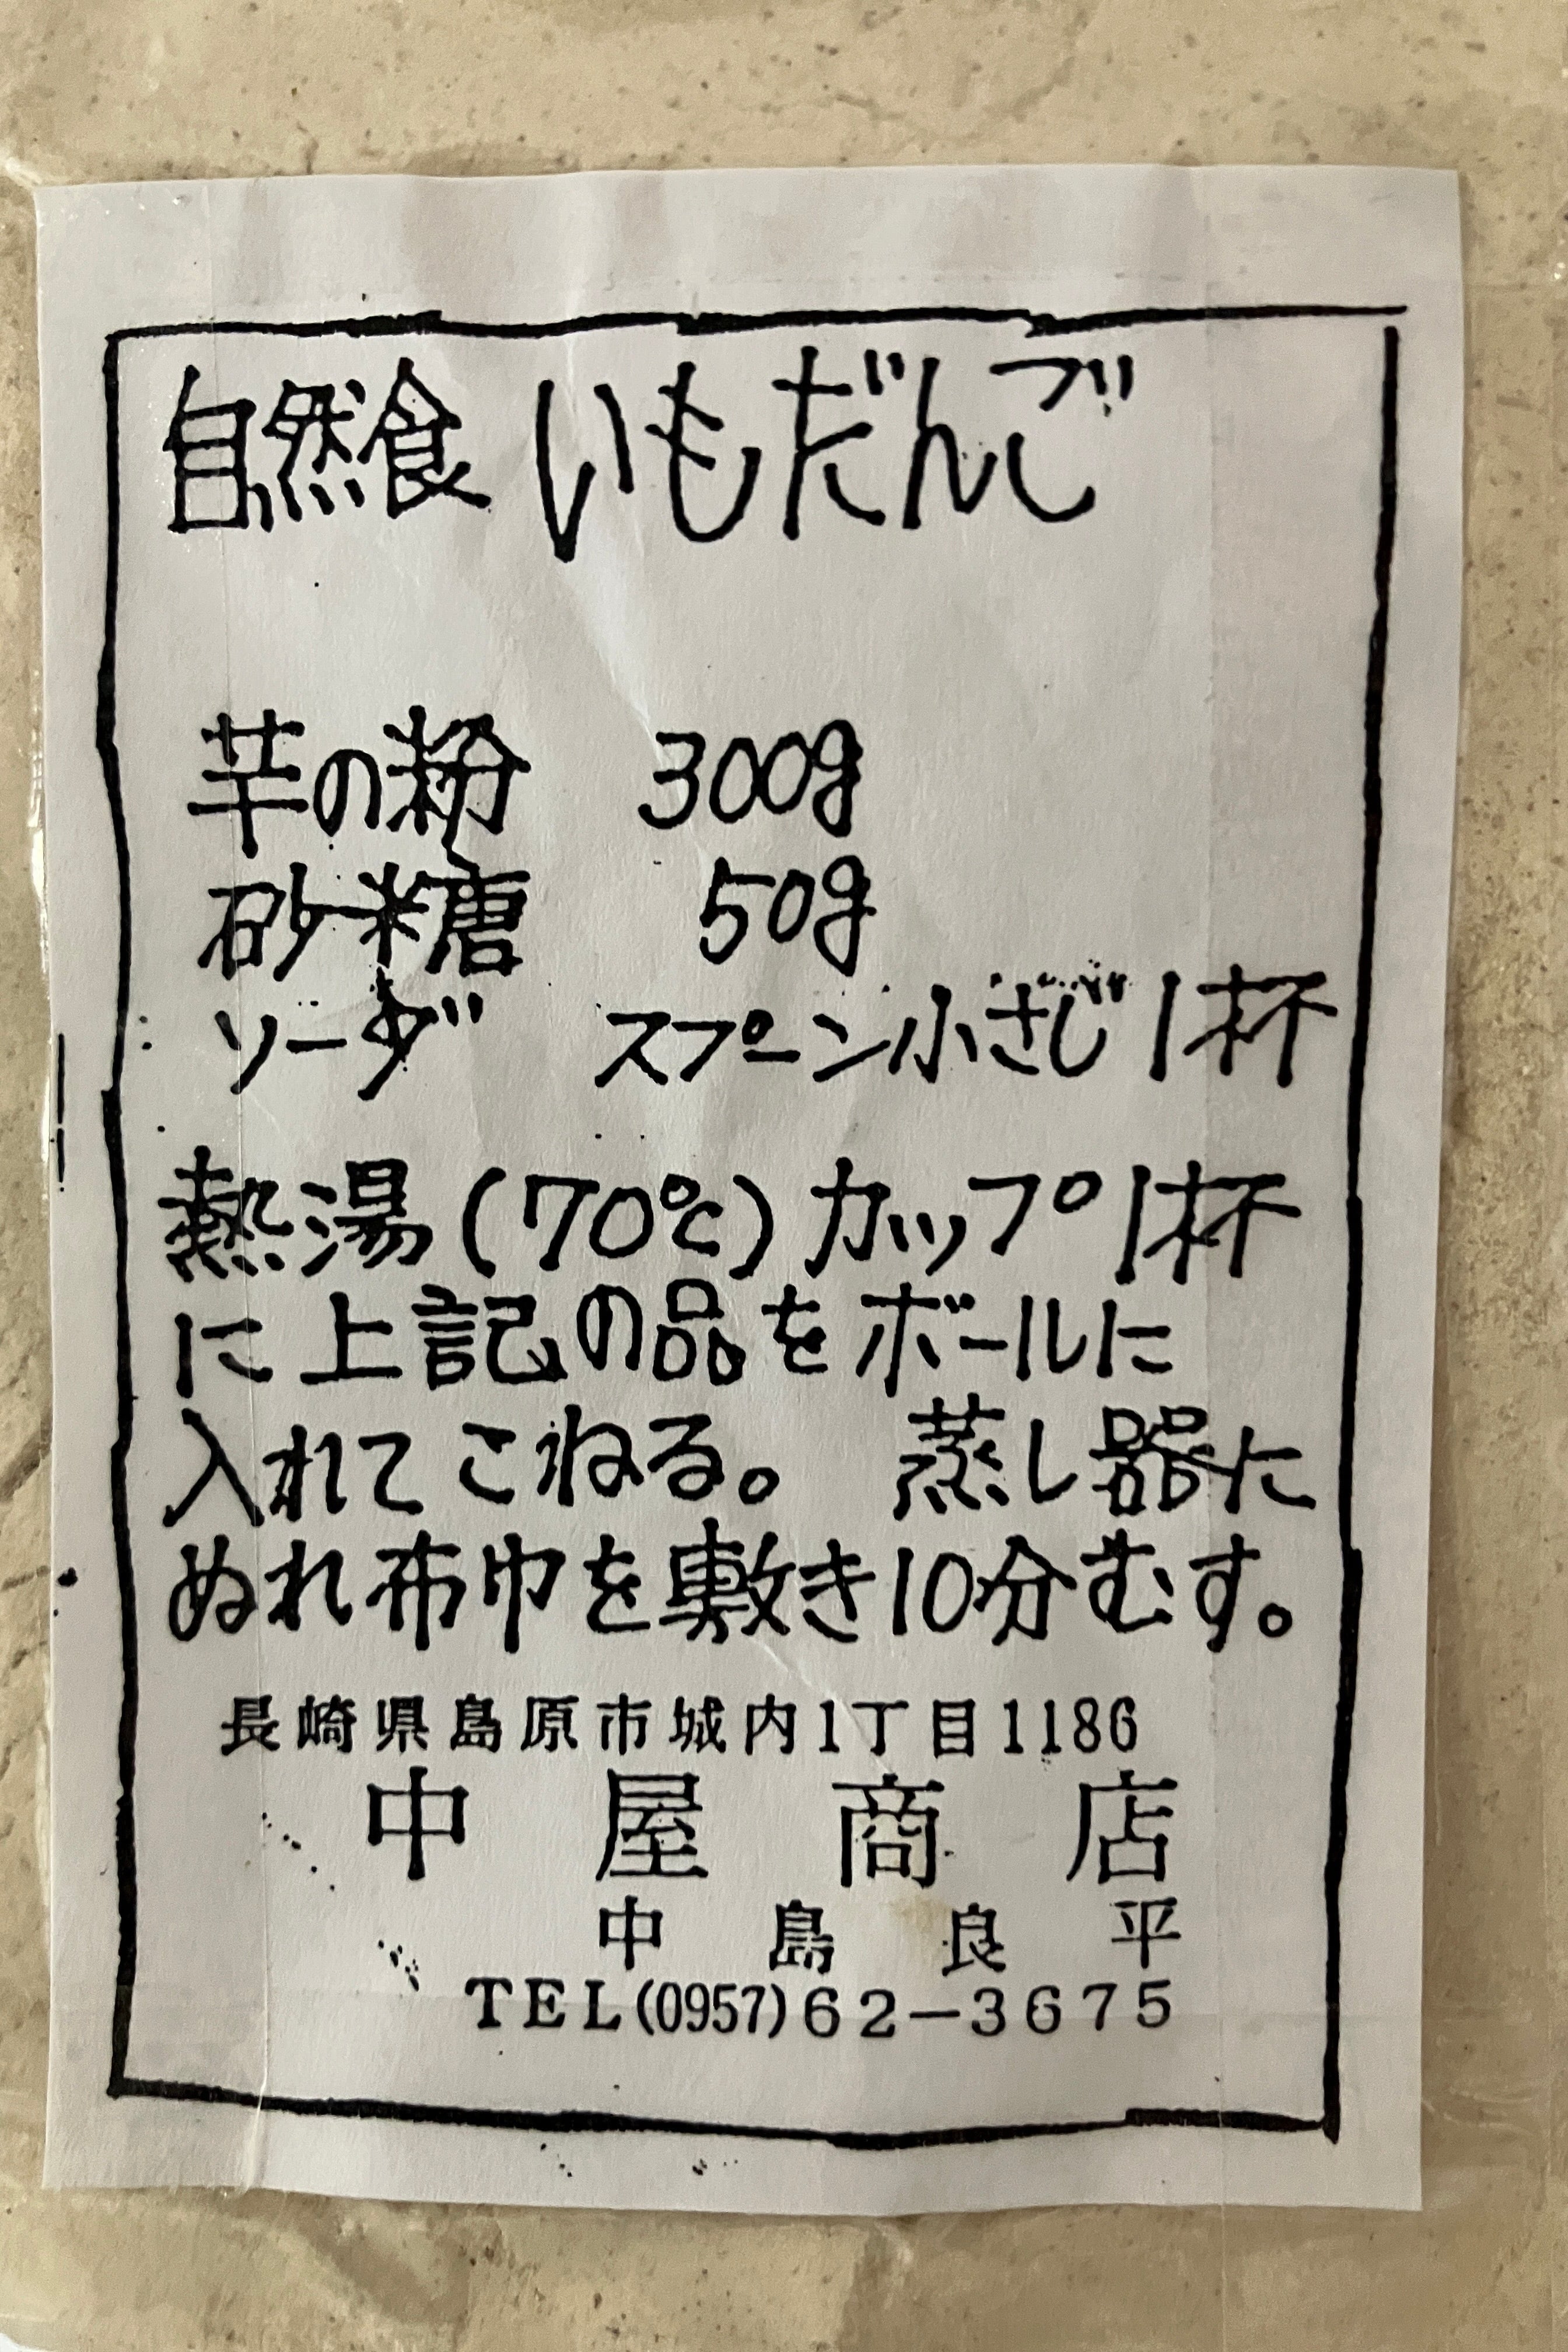 自然食 いもだんご
芋の粉 300g
砂糖 50g
ソーダ スプーン小さじ1杯
熱湯(70℃)カップ1杯
に上記の品をボールに
入れてこねる。 蒸し器に
ぬれ布巾を敷き10分むす。
長崎県島原市城内1丁目1186
中屋商店
中島良平
TEL(0957)62-3675